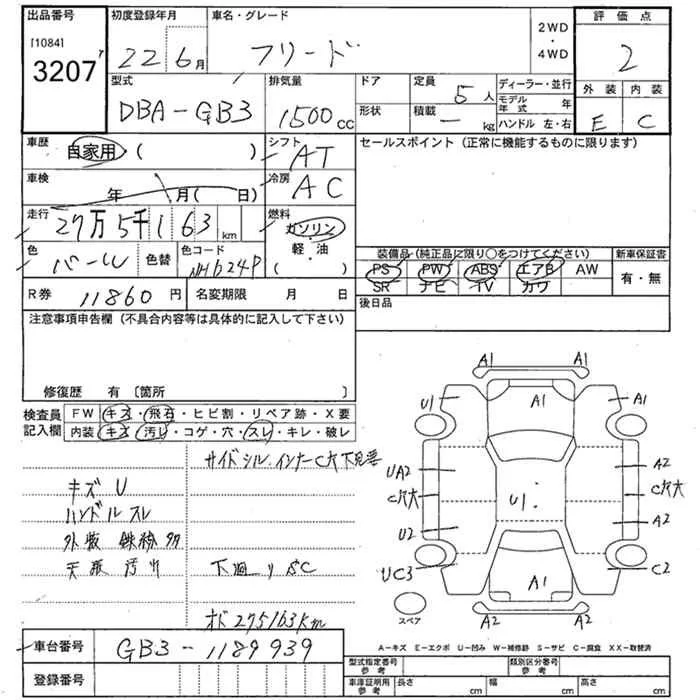 出品番号
[1084]
3207
初度登録年月
22 6月
車名・グレード
フリード
2WD
・
4WD
評価点
2
外装 内装
E C
型式
DBA-GB3
排気量
1500cc
ドア
形状
定員
5人
積載
ー kg
ディーラー・並行
モデル年式 年
ハンドル 左・右
車歴
自家用 ( )
シフト
AT
車検
年 月( 日)
冷房
AC
走行
27万5千163km
燃料
ガソリン
・
軽・油
( )
色
パール
色替
色コード
NH624P
R券
11860円
名変期限 月 日
セールスポイント(正常に機能するものに限ります)
装備品(純正品に限り○をつけてください)
PS PW ABS エアB AW
SR ナビ TV カワ
新車保証書
有・無
後日品
注意事項申告欄(不具合内容等は具体的に記入して下さい)
修復歴 有〔箇所 〕
検査員記入欄
FW キズ・飛石・ヒビ割・リペア跡・X要
内装 キズ・汚レ・コゲ・穴・スレ・キレ・破レ
サイドシル.インナーC穴
キズ U
ハンドルスレ
外装 線
天張汚れ
下廻りSC
オド275163km
A1
A1
U1
A1
UA2
A2
C穴大
U1
C穴大
U2
A2
UC3
A1
C2
A2
A2
スペア
車台番号
GB3-1189939
登録番号
A-キズ E-エクボ U-凹み W-補修跡 S-サビ C-腐食 XX-取替済
型式指定番号参考
類別区分番号参考
車庫証明用参考
長さ cm
幅 cm
高さ cm